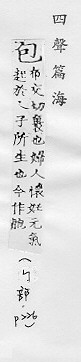 四聲篇海
包 布交切裹也婦人懷妊元氣
起於人子所生也今作胞
(勹部、p226)